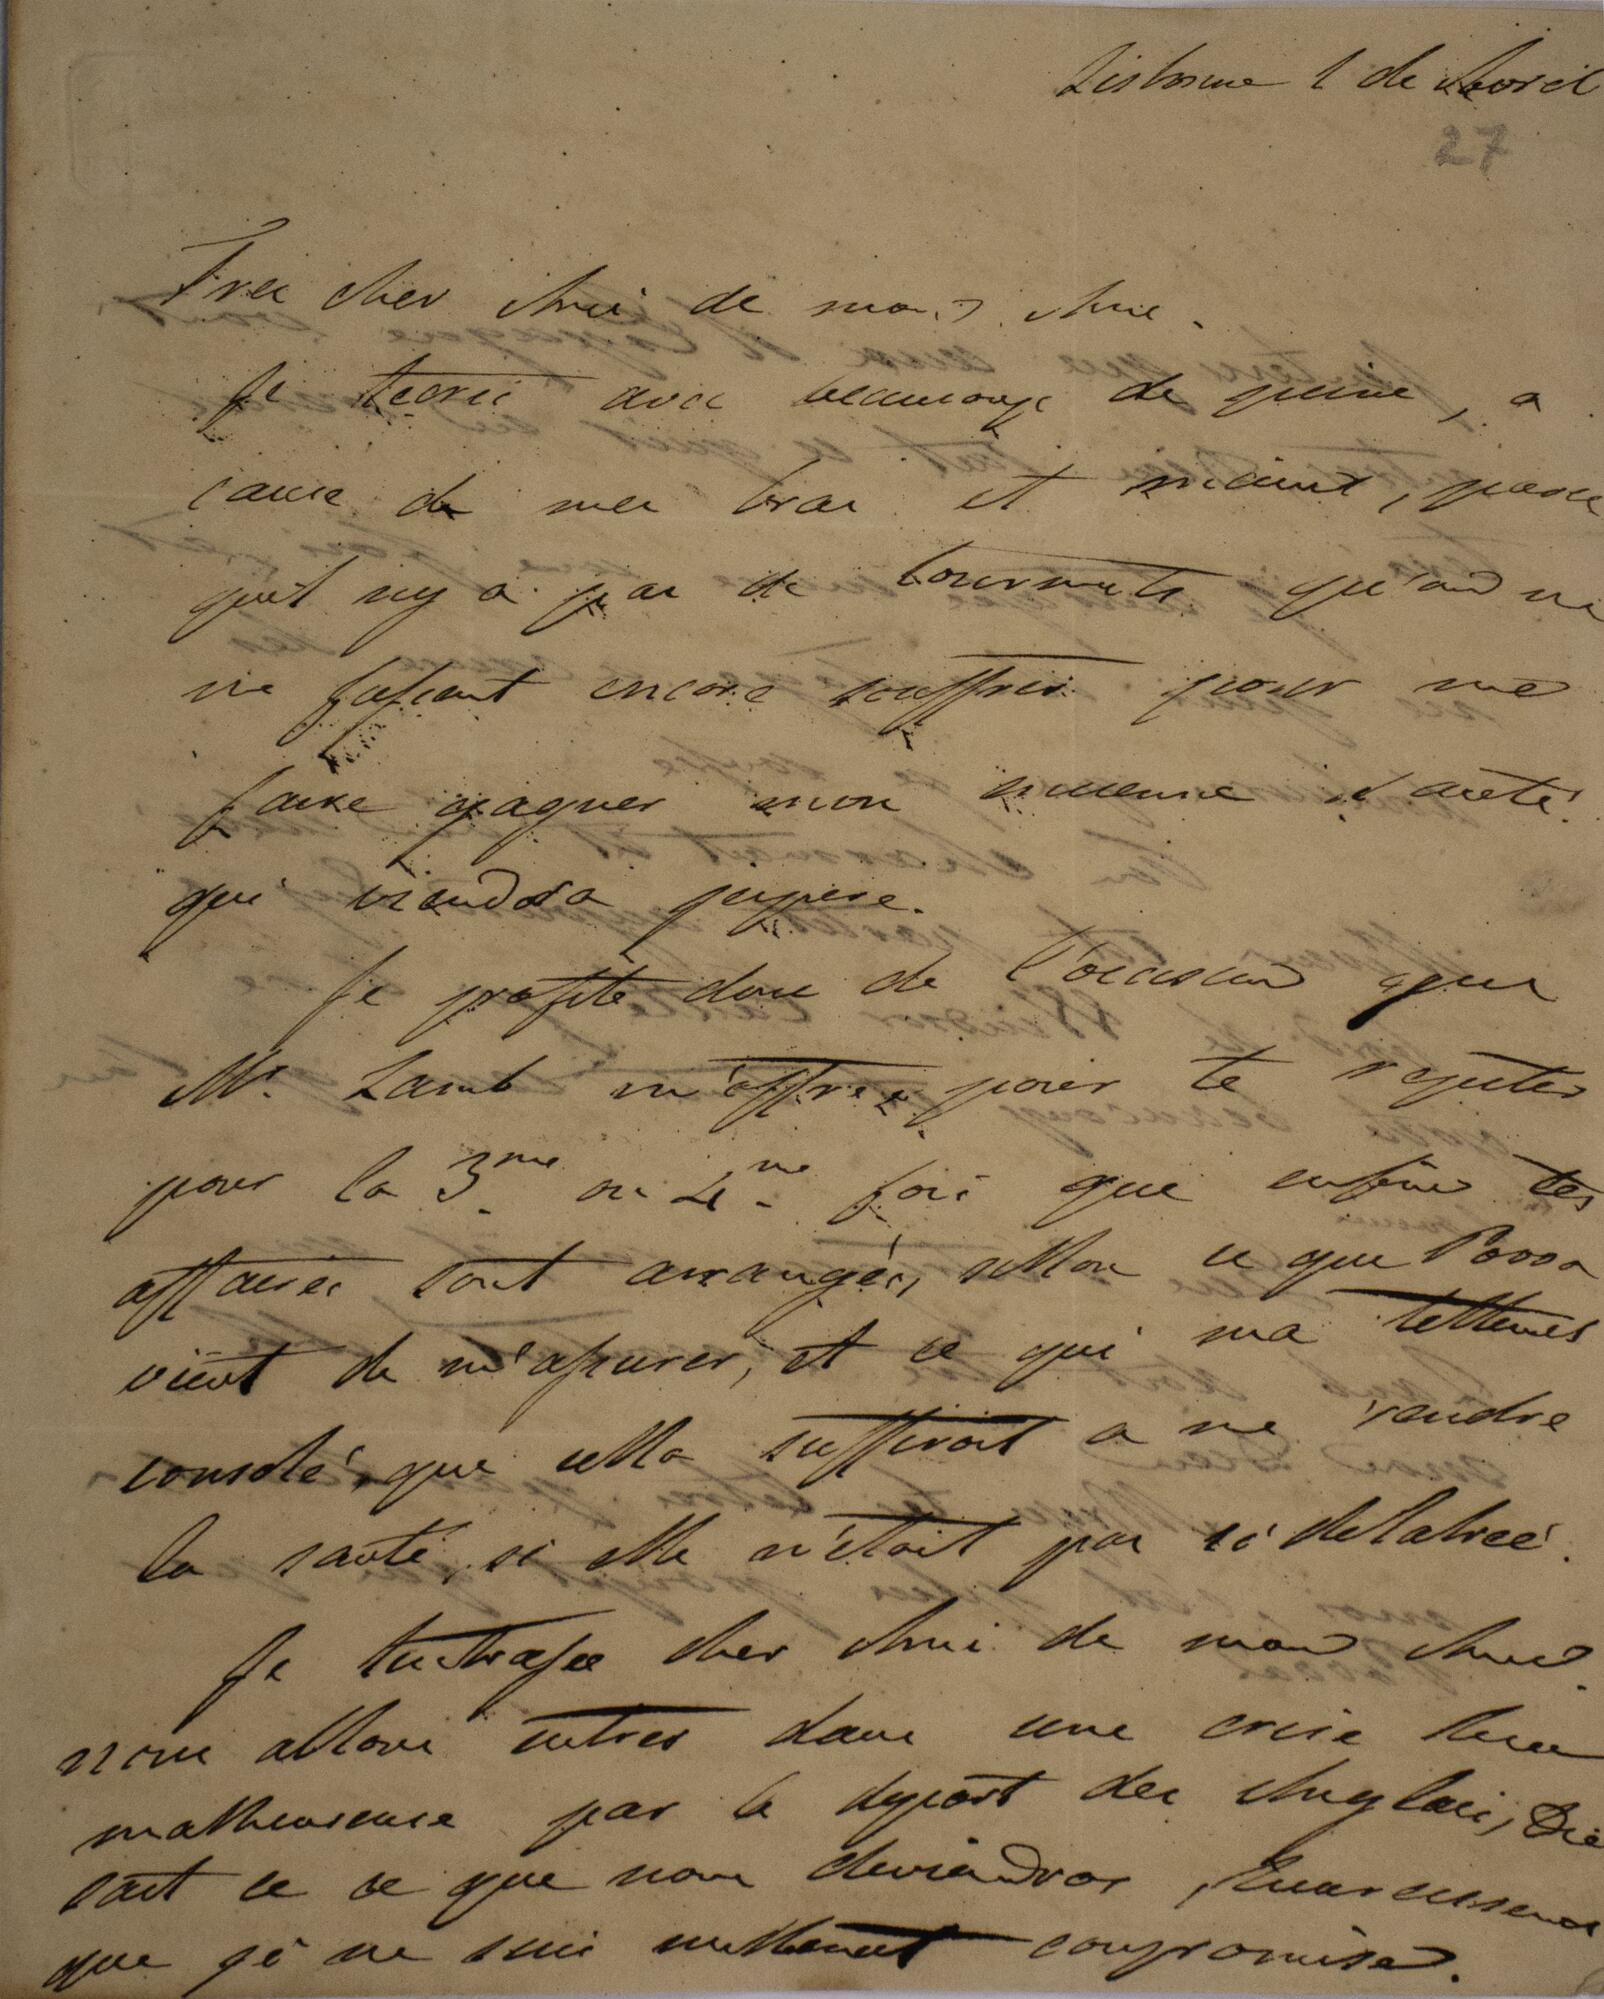 Lisbonne 1 de Avril
27
Tres cher Ami de mon Ame.
Je tecris avec beaucoup de peine, a
cause de mes bras et mains, parce
qu'il ny a pas de tourments qu'on ne
me fassent encore souffrir pour me
faire gagner mon ancienne santé
qui viendra jespere.
Je profite donc de l'occasion que
Mr. Lamb m'offre, pour te repeter
pour la 3.me ou 4.me fois que enfin tes
affaires sont arrangés, sellon ce que Povoa
vient de m'assurer, et ce qui ma tellement
consolé, que cella suffiroit a me rendre
la santé, si elle n'étoit pas si delabreé.
Je tembrasse cher Ami de mon Ame.
nous allons entrer dans une crise bien
malheureuse par le depart des Anglais, Die
sait ce ce que nous deviendros, heureusement
que je ne suis nullement compromise.